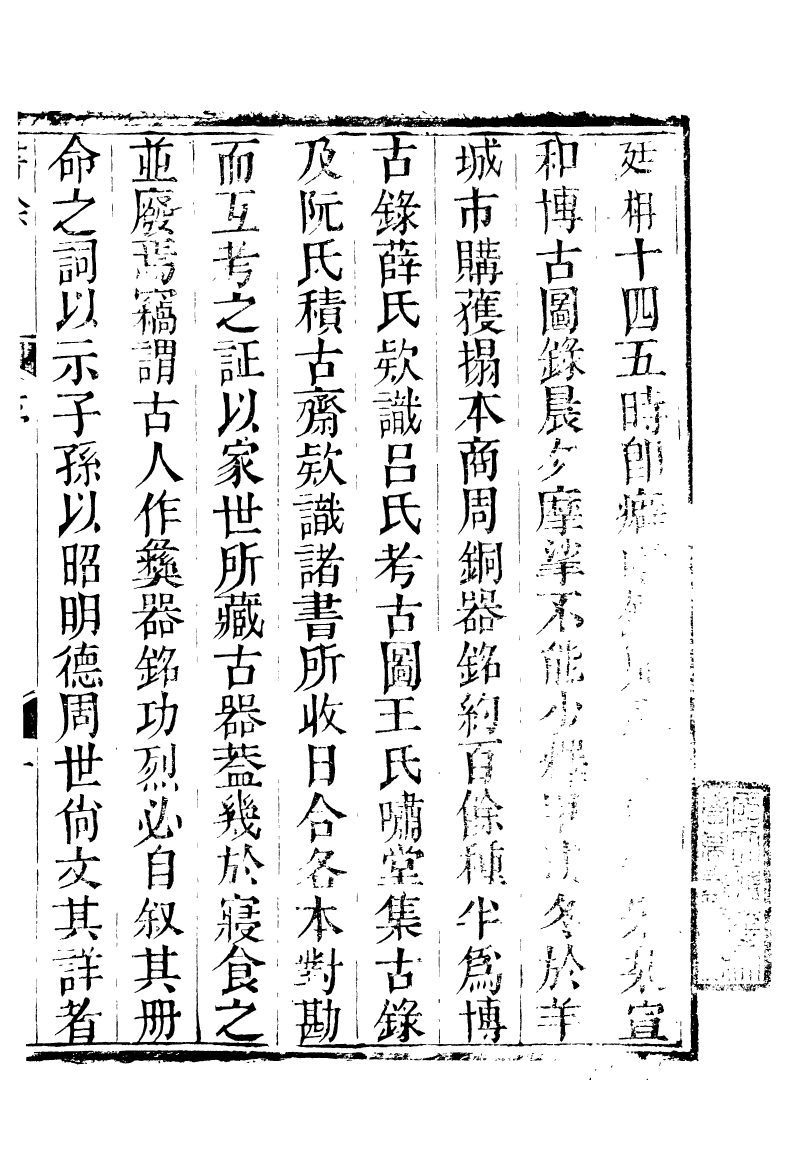 廷相十四五時即癖宣
和博古圖錄晨夕摩挲不能少釋冬於羊
城市購獲搨本商周銅器銘約百餘種半爲博
古錄薛氏欵識呂氏考古圖王氏嘯堂集古錄
及阮氏積古齋欵識諸書所收日合各本對勘
而互考之証以家世所藏古器葢幾於寢食之
並廢焉竊謂古人作彝器銘功烈必自叙其册
命之詞以示子孫以昭明德周世尙文其詳者